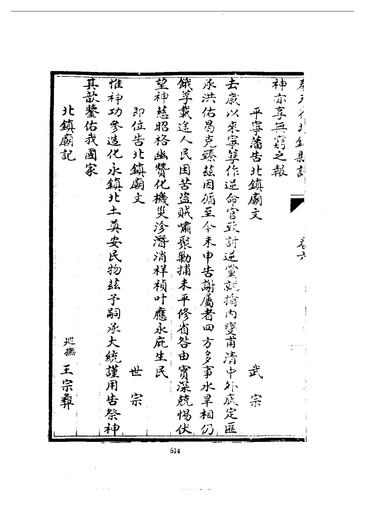 神亦享無窮之報
平寧藩告北鎮廟文
武宗
去歲以來寧孽作逆命官致討逆黨就擒內變甫清中外底定匪
承洪佑曷克臻茲因循至今未申告謝屬者四方多事水旱相仍
餓莩載途人民困苦盜賊嘯聚勦捕未平修省咎由實深兢惕伏
望神慈昭格幽贊化機災沴潛消祥禎叶應永庇生民
即位告北鎮廟文
世宗
惟神功參造化永鎮北土奠安民物茲予嗣承大統謹用告祭神
其歆鑒佑我國家
北鎮廟記
巡撫 王宗彝
卷六
614